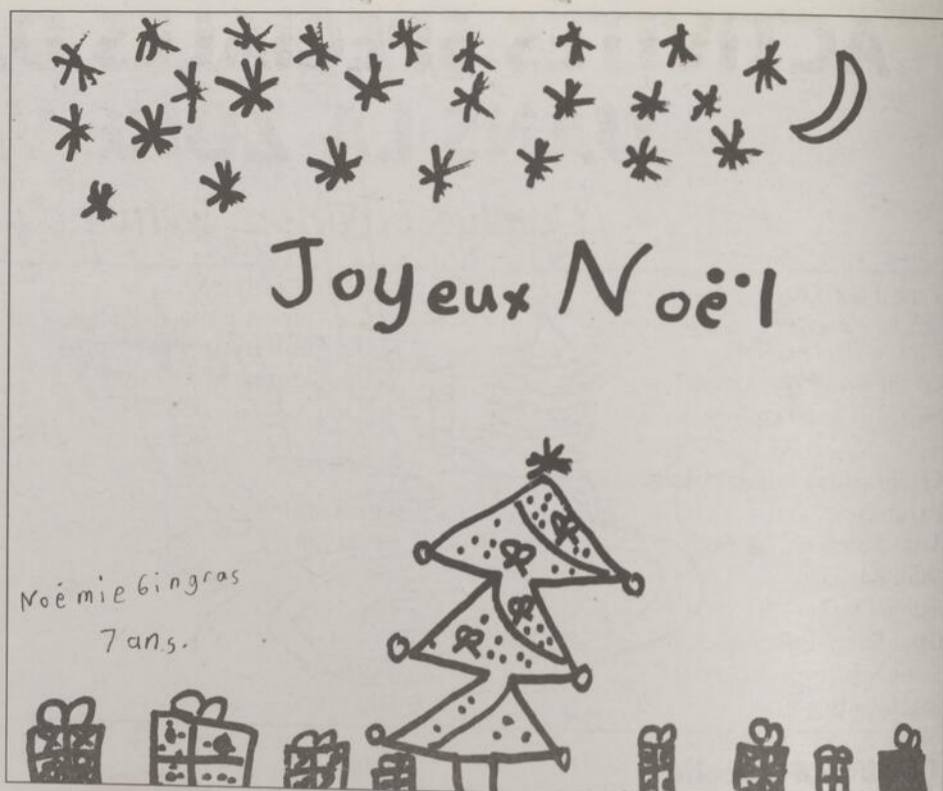 Joyeux Noël
Noémie Gingras
7 ans.